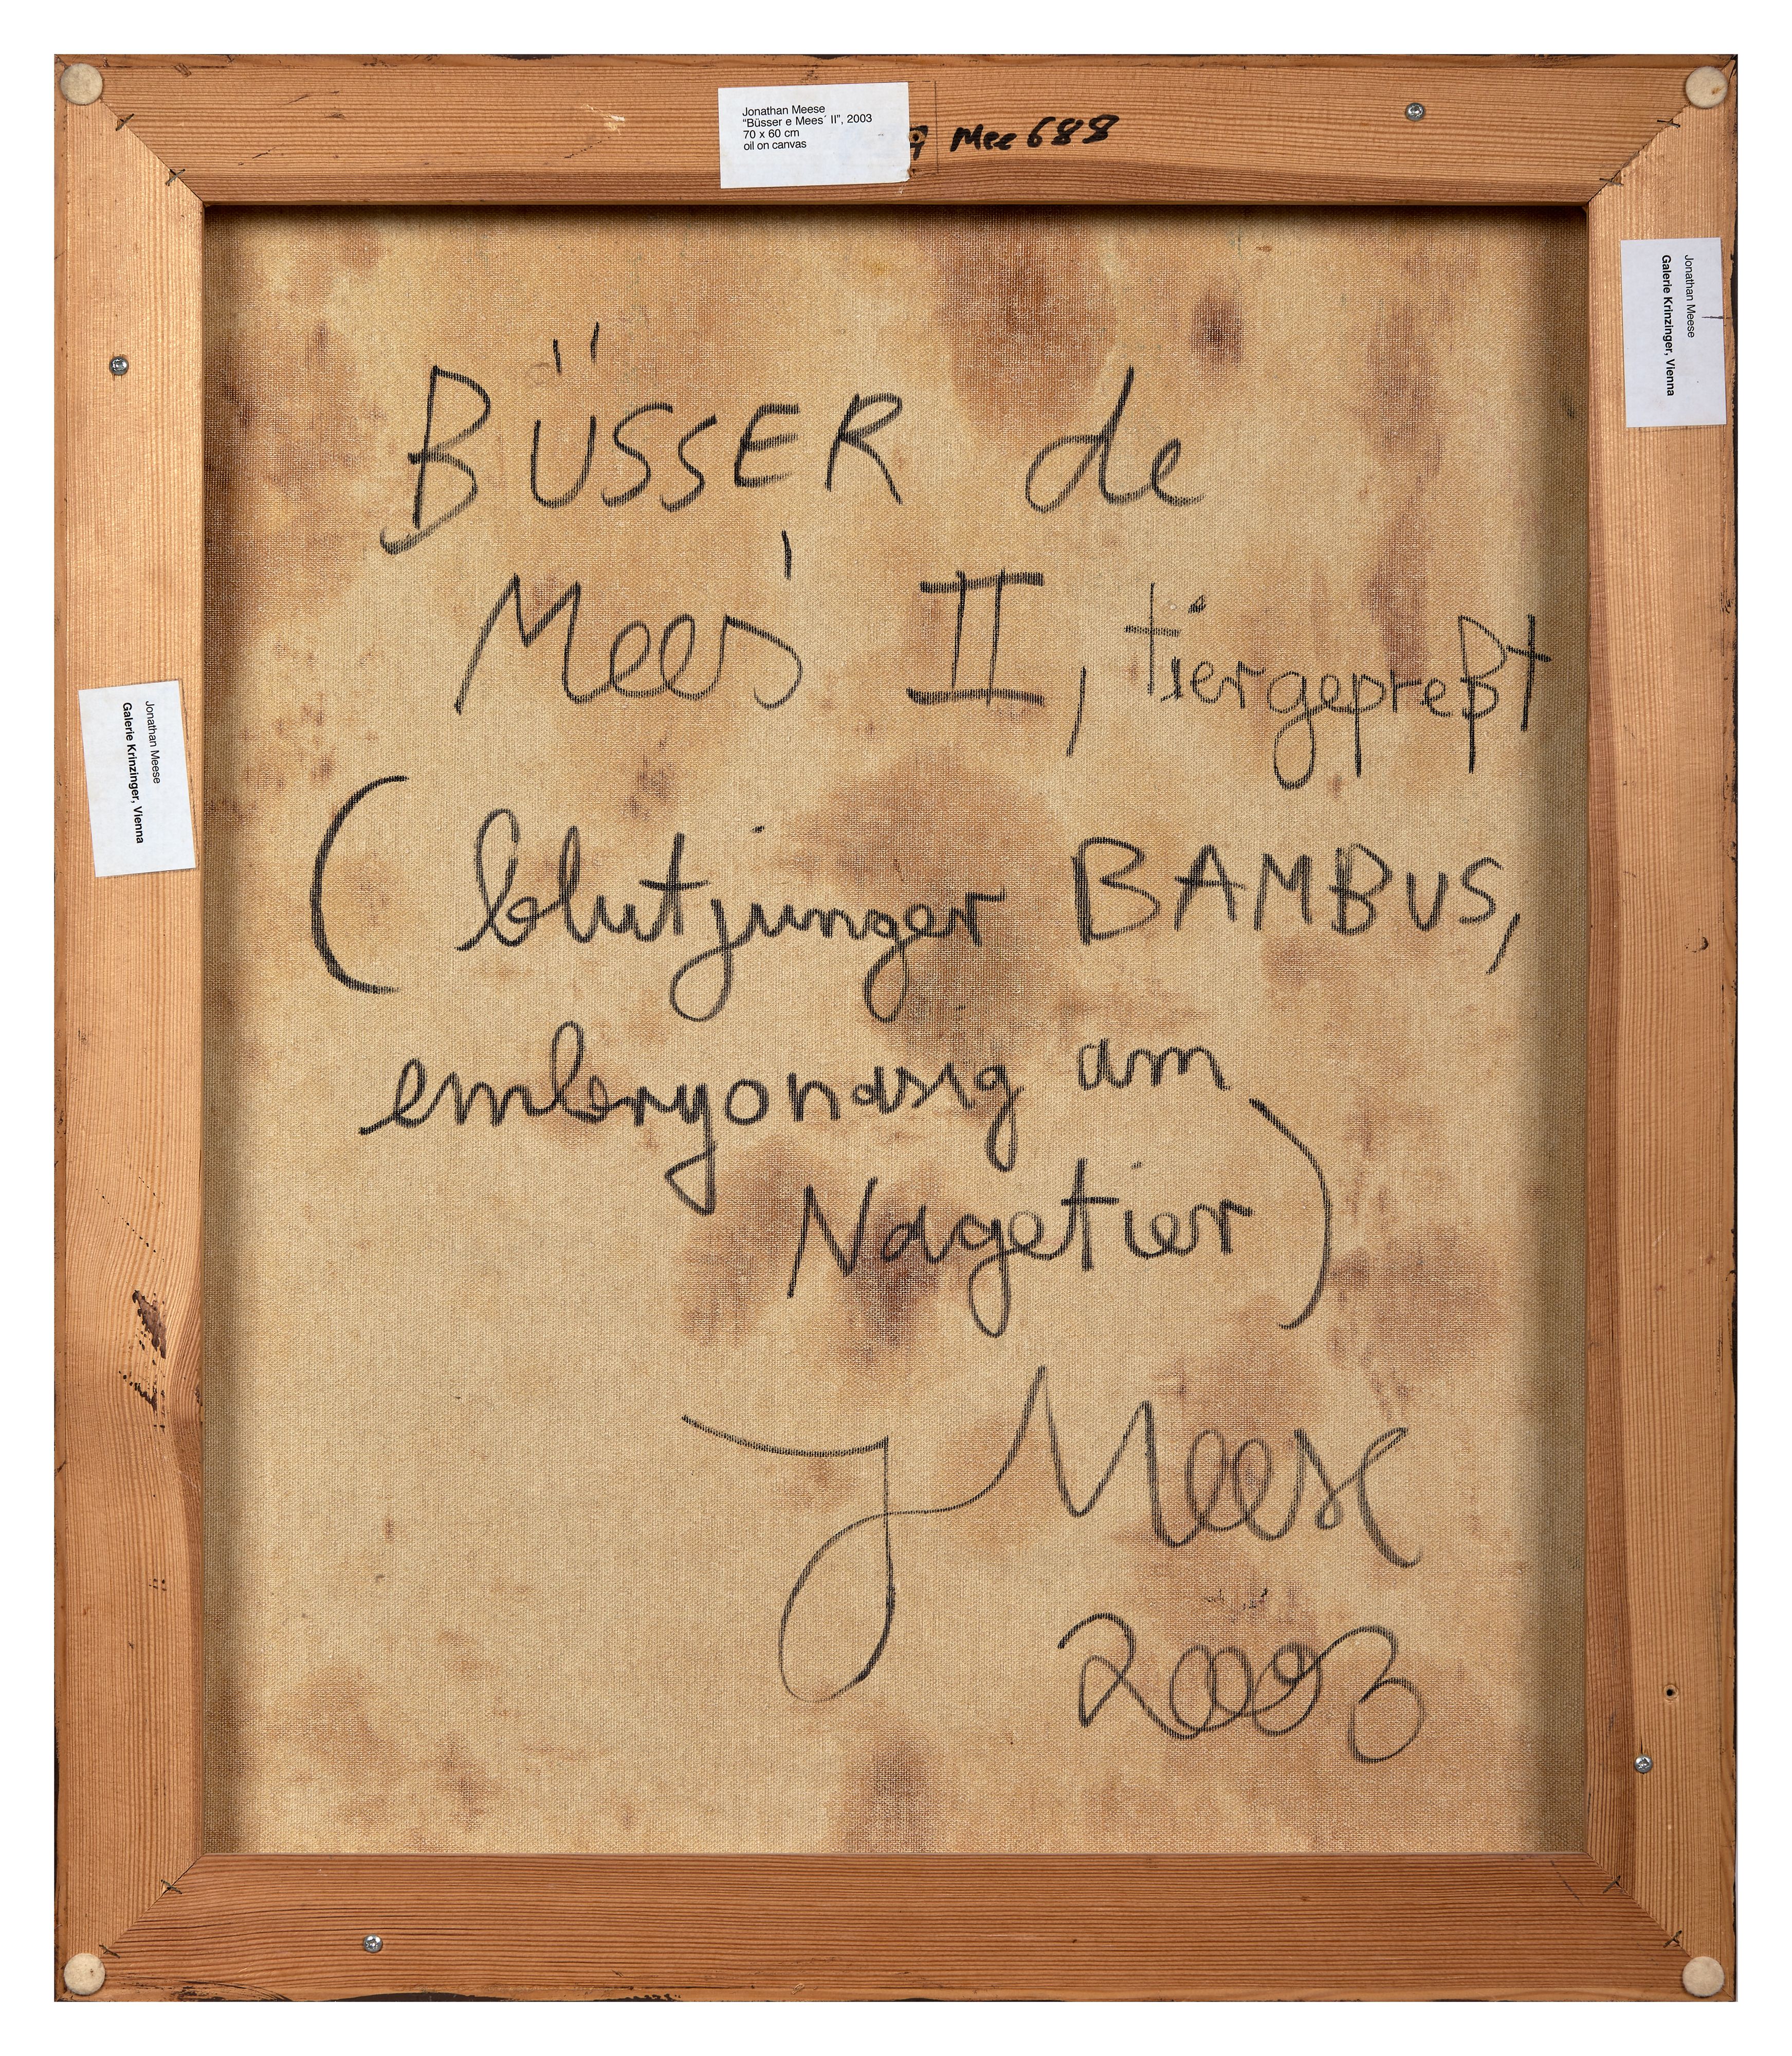 Jonathan Meese
"Büsser e Mees´ II", 2003
70 x 60 cm
oil on canvas
Mee 688
Jonathan Meese
Galerie Krinzinger, Vienna
Jonathan Meese
Galerie Krinzinger, Vienna
BÜSSER de
Mees' II, tiergepreßt
( blutjunger BAMBUS,
embryonasig am
Nagetier )
J Meese
2003